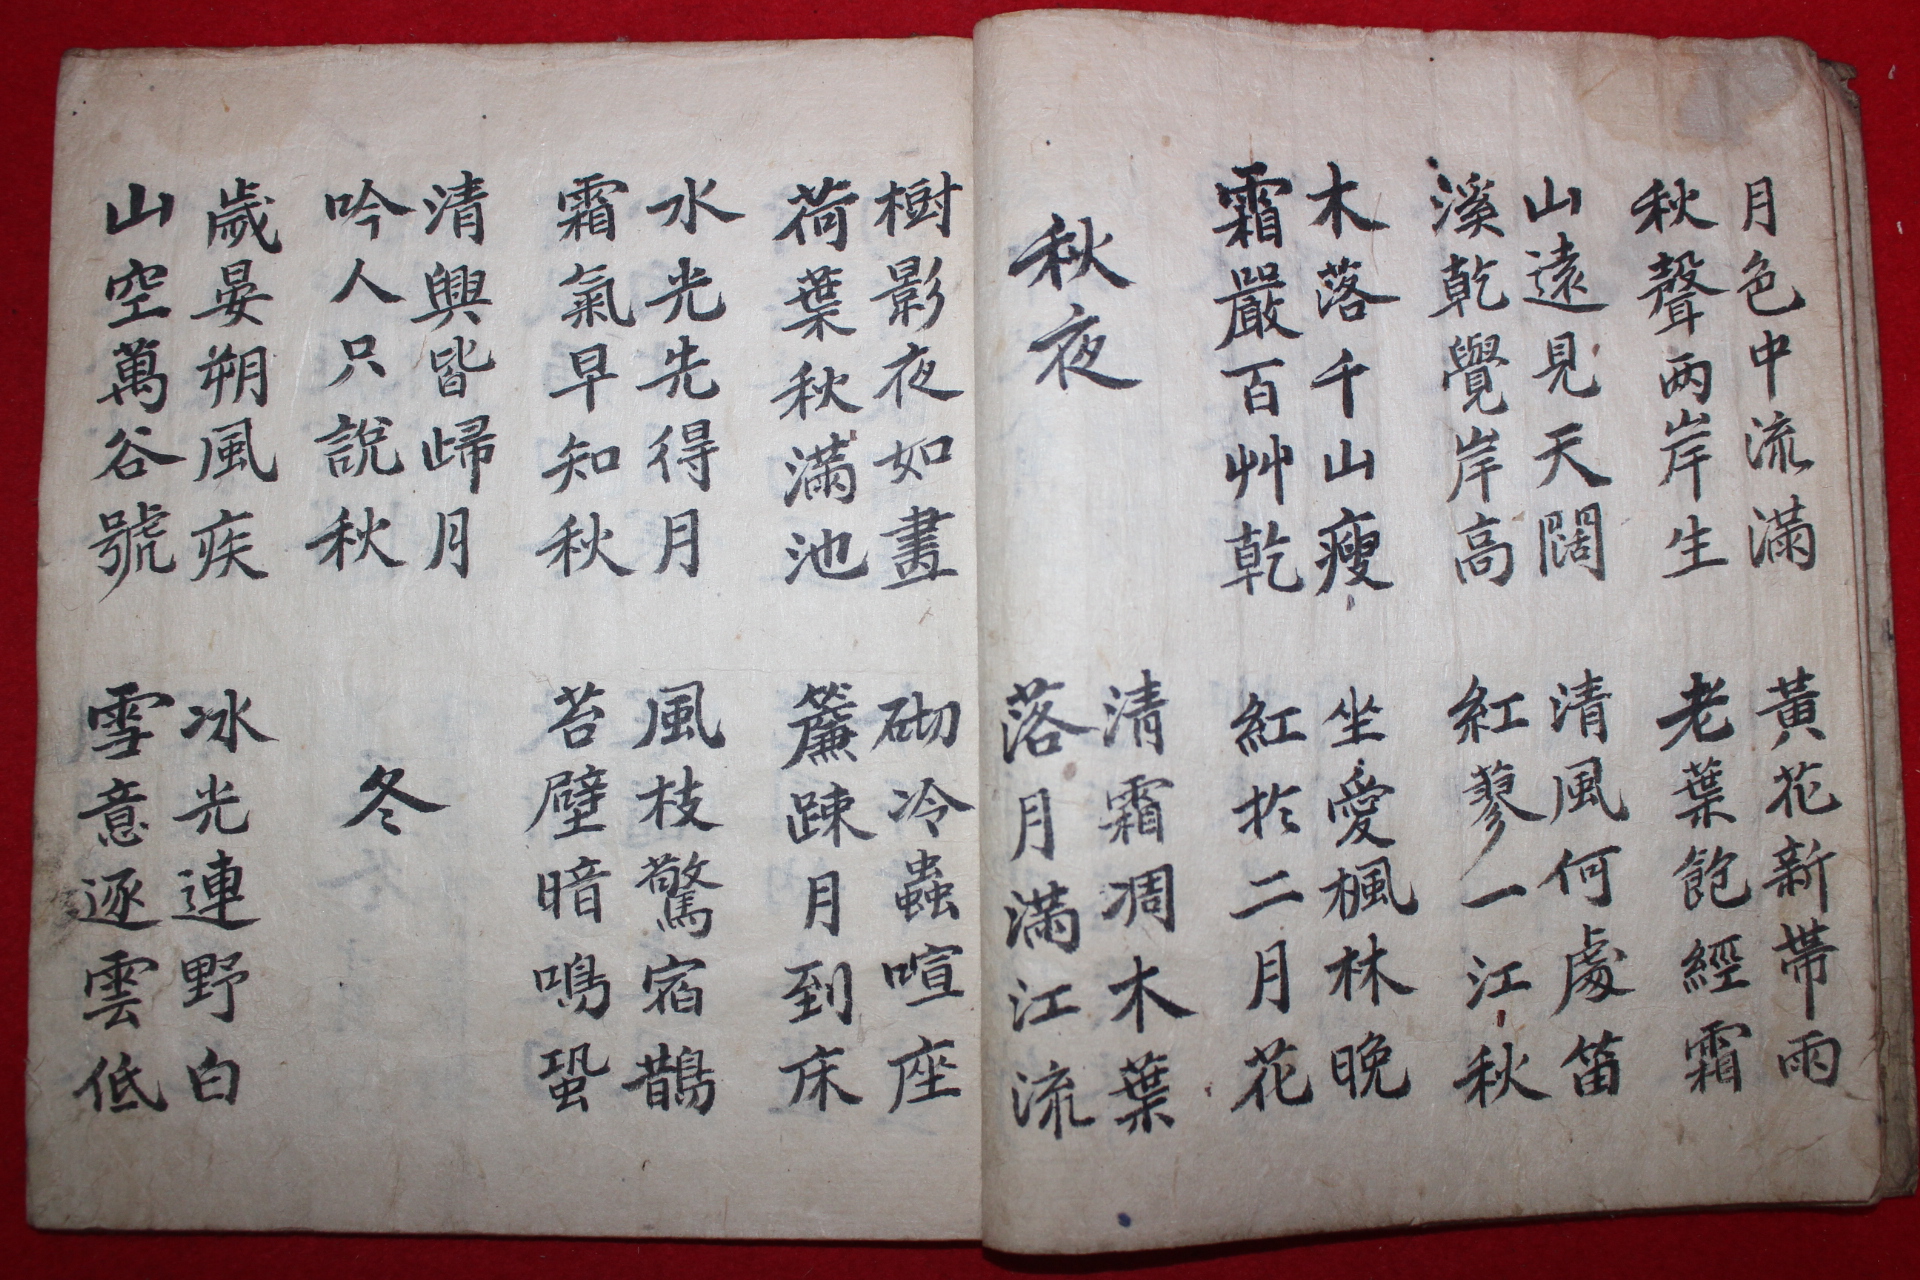 月色中流滿
秋聲两岸生
黃花新帶雨
老葉飽經霜
山遠見天闊
溪乾覺岸高
清風何處笛
紅蓼一江秋
木落千山瘦
霜嚴百艸乾
坐愛楓林晚
紅扵二月花
秋夜
清霜凋木葉
落月滿江流
樹影夜如晝
荷葉秋滿池
砌冷蟲喧座
簾踈月到床
水光先得月
霜氣早知秋
風枝驚宿鵲
苔壁暗鳴蛩
清興皆歸月
吟人只說秋
冬
歲晏朔風疾
山空萬谷號
冰光連野白
雪意逐雲低